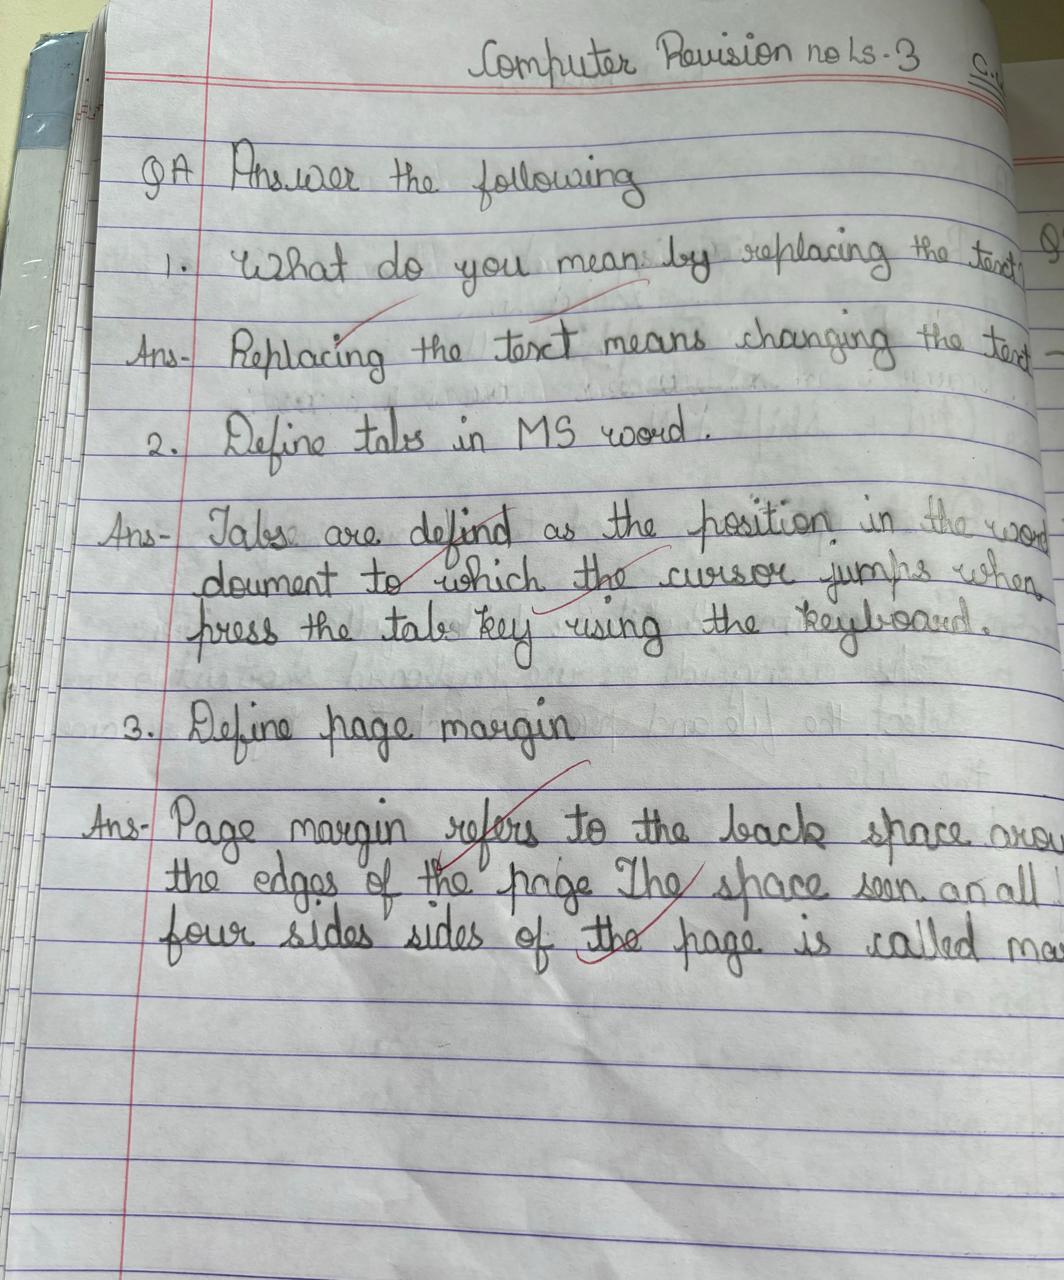 Computer Revision no Ls-3
QA Answer the following
1. What do you mean by replacing the text
Ans- Replacing the text means changing the text
2. Define tabs in MS word.
Ans- Tabs are defind as the position in the word
doument to which the cursor jumps when
press the tab key using the keyboard.
3. Define page margin
Ans- Page margin refers to the back space arou
the edges of the page The space seen on all
four sides sides of the page is called ma